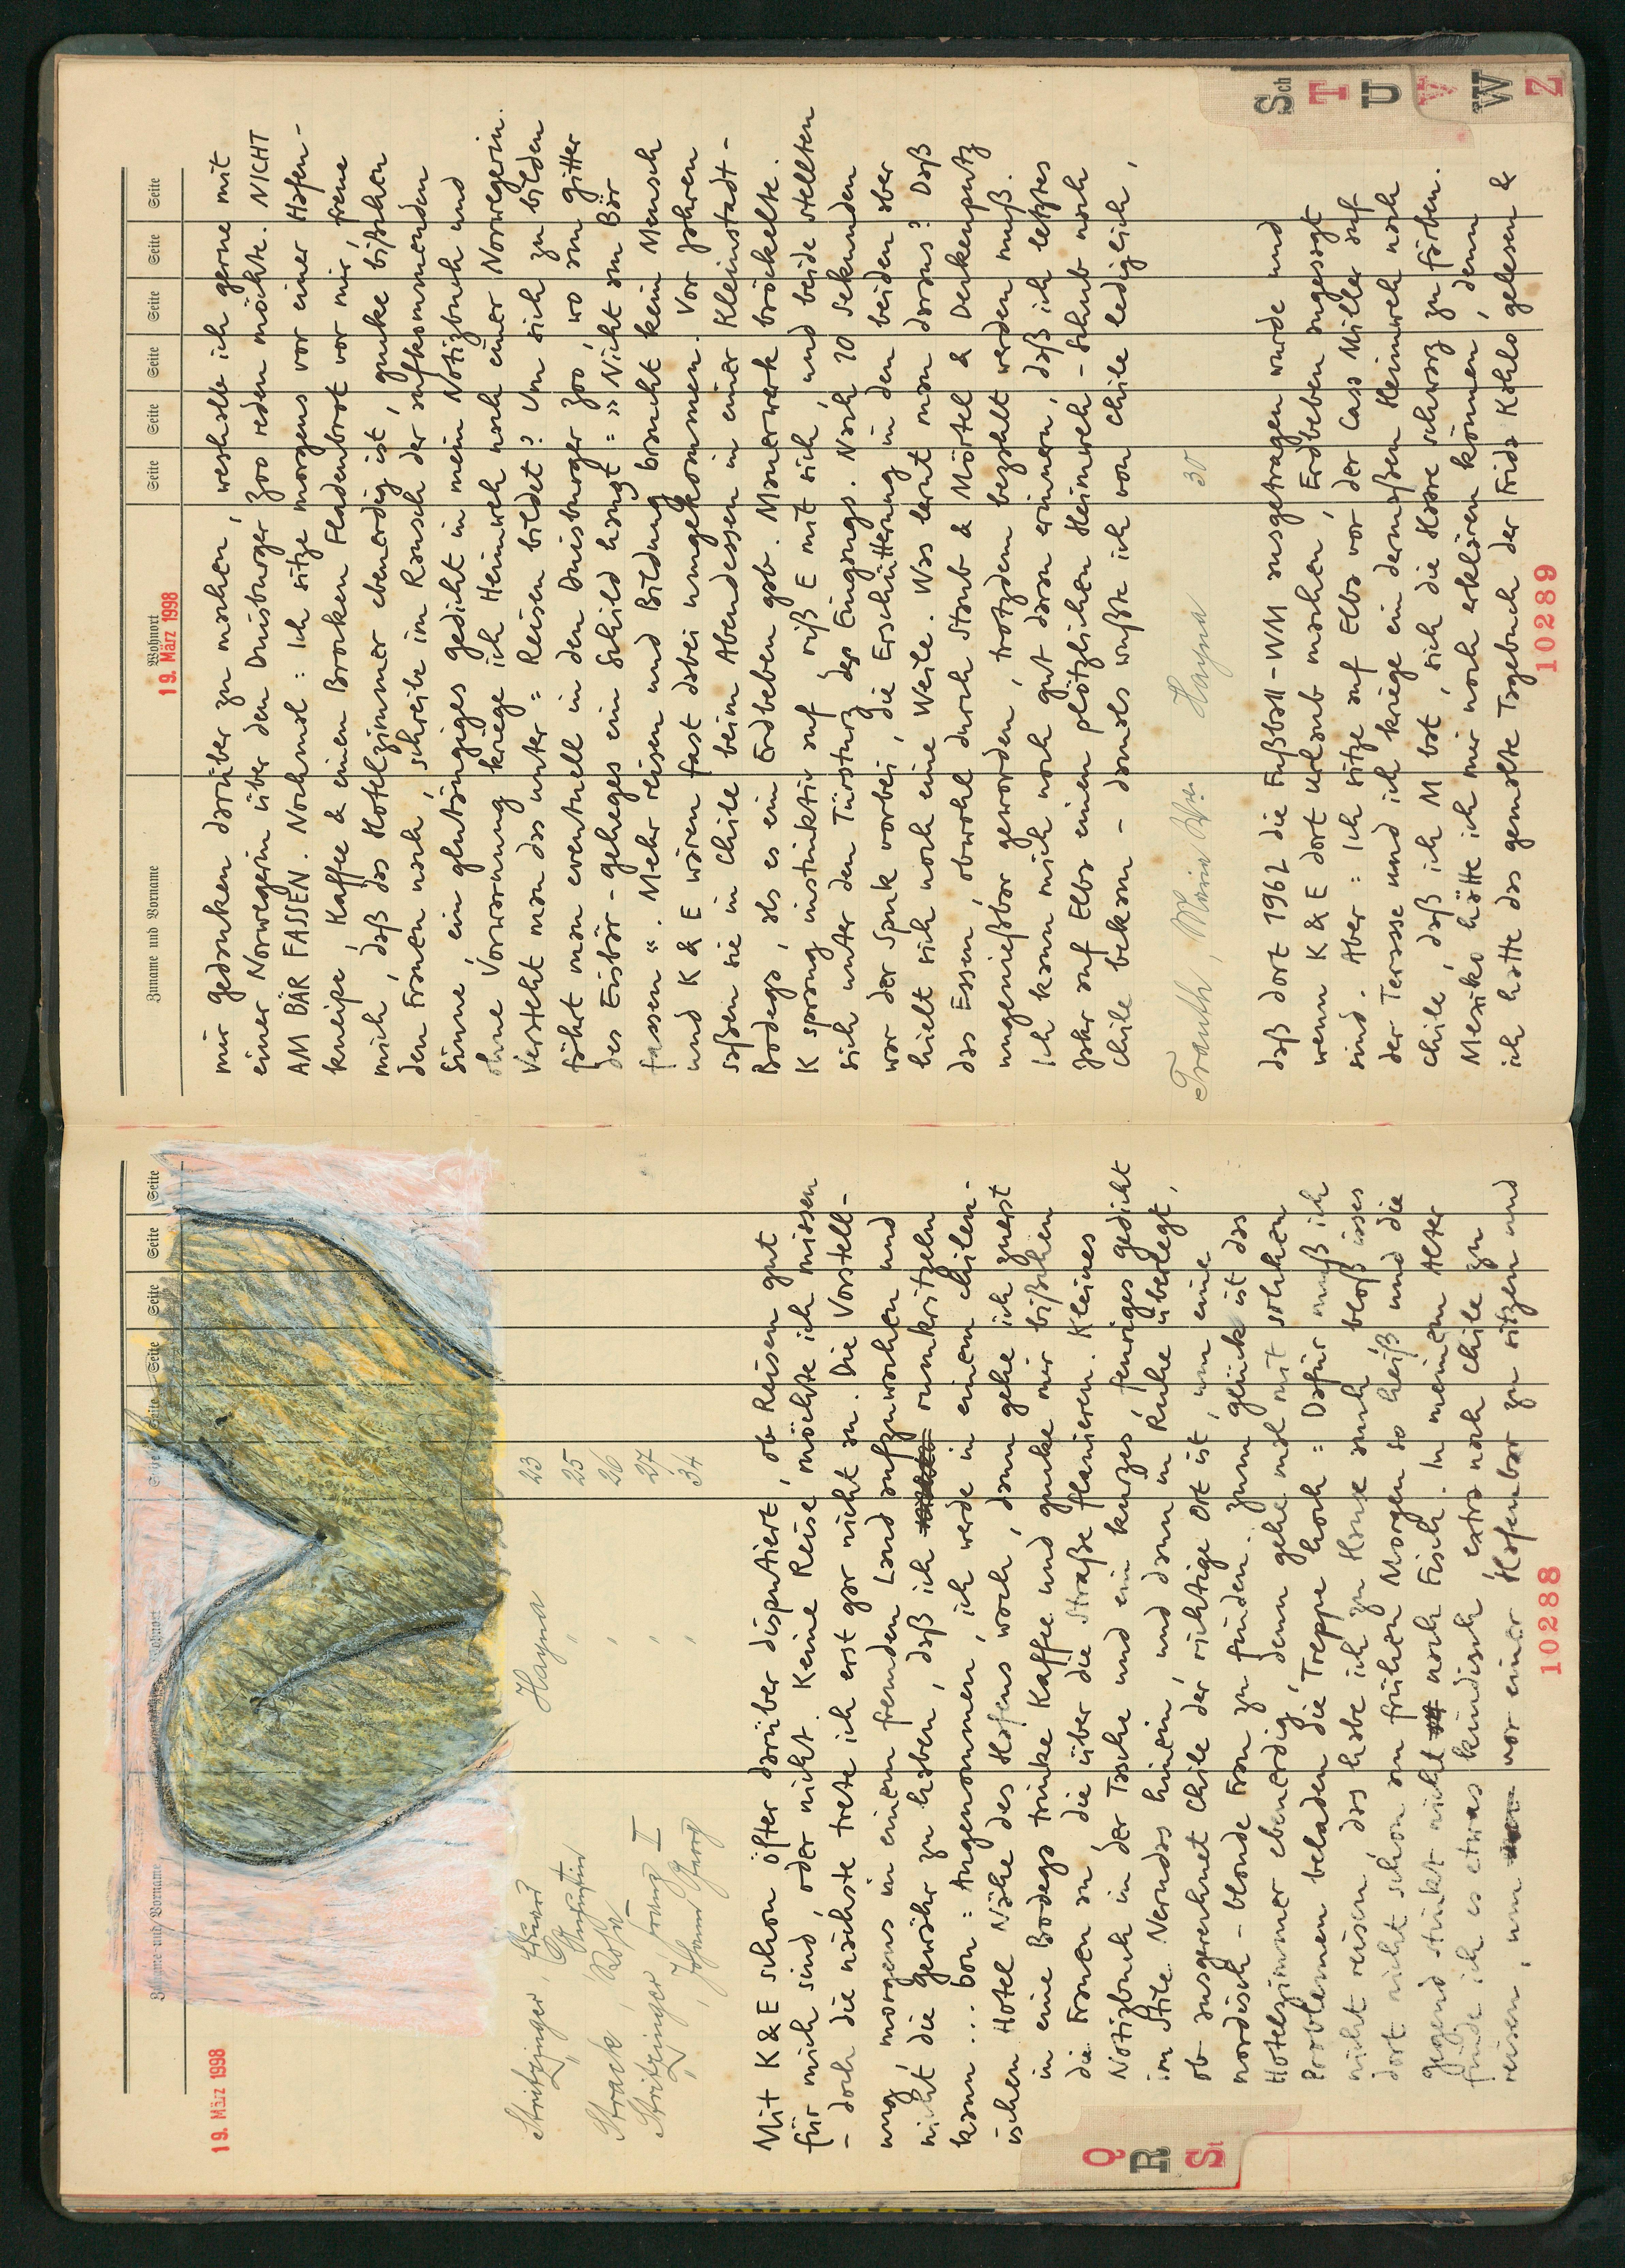 Zuname und Vorname Wohnort Seite Seite Seite Seite Seite Seite
19. März 1998
Stritzinger, Hayna 23
" " 25
Strack, Rosa " 26
Stritzinger, Franz I " 27
", Johann Georg " 34
Mit K & E schon öfter darüber disputiert, ob Reisen gut
für mich sind, oder nicht. Keine Reise möchte ich missen
– doch die nächste trete ich erst gar nicht an. Die Vorstell-
ung, morgens in einem fremden Land aufzuwachen und
nicht die gewähr zu haben, daß ich rumkritzeln
kann ... bon: Angenommen, ich werde in einem chilen-
ischen Hotel Nähe des Hafens wach, dann gehe ich zuerst
in eine Bodega trinke Kaffee und gucke mir bißchen
die Frauen an die über die Straße flanieren. Kleines
Notizbuch in der Tasche und ein kurzes, feuriges gedicht
im Stile Nerudas hinein, und dann in Ruhe überlegt,
ob ausgerechnet Chile der richtige Ort ist, um eine
nordisch-blonde Frau zu finden. Zum glück ist das
Hotelzimmer ebenerdig, denn gehe mal mit solchen
Problemen beladen die Treppe hoch: Dafür muß ich
nicht reisen, das habe ich zu Hause auch, bloß isses
dort nicht schon am frühen Morgen so heiß und die
gegend stinkt nicht nach Fisch. In meinem Alter
finde ich es etwas kindisch, extra nach Chile zu
reisen, um vor einer Hafenbar zu sitzen und
10288
Q
R
St
Zuname und Vorname Wohnort Seite Seite Seite Seite Seite Seite
19. März 1998
mir gedanken darüber zu machen, weshalb ich gerne mit
einer Norwegerin über den Duisburger Zoo reden möchte. NICHT
AM BÄR FASSEN. Nochmal: Ich sitze morgens vor einer Hafen-
kneipe, Kaffee & einen Brocken Fladenbrot vor mir, freue
mich, daß das Hotelzimmer ebenerdig ist, gucke bißchen
den Frauen nach, schreibe im Rausch der aufkommenden
Sinne, ein glutäugiges gedicht in mein Notizbuch und
ohne Vorwarnung kriege ich Heimweh nach einer Norwegerin.
Versteht man das unter: Reisen bildet? Um sich zu bilden
fährt man eventuell in den Duisburger Zoo, wo am gitter
des Eisbär-geheges ein Schild hängt: »Nicht am Bär
fassen«. Mehr reisen und Bildung braucht kein Mensch
und K & E wären fast dabei umgekommen. Vor Jahren
saßen sie in Chile beim Abendessen in einer Kleinstadt-
Bodega, als es ein Erdbeben gab. Mauerwerk bröckelte.
K sprang instinktiv auf, riß E mit sich, und beide stellten
sich unter den Türsturz des Eingangs. Nach 20 Sekunden
war der Spuk vorbei, die Erschütterung in den beiden aber
hielt sich noch eine Weile. Was lernt man daraus? Daß
das Essen, obwohl durch Staub & Mörtel & Deckenputz
ungenießbar geworden, trotzdem bezahlt werden muß.
Ich kann mich noch gut daran erinnern, daß ich letztes
Jahr auf Elba einen plötzlichen Heimweh-Schub nach
Chile bekam – damals wußte ich von Chile lediglich,
Trauth, Maria Hayna 30
daß dort 1962 die Fußball-WM ausgetragen wurde und
wenn K & E dort Urlaub machen, Erdbeben angesagt
sind. Aber: Ich sitze auf Elba vor der Casa Miller auf
der Terasse und ich kriege ein dermaßen Heimweh nach
Chile, daß ich M bat, sich die Haare schwarz zu färben.
Mexiko hätte ich mir noch erklären können, denn
ich hatte das gemalte Tagebuch der Frida Kahlo gelesen &
10289
Sch
T
U
V
W
Z